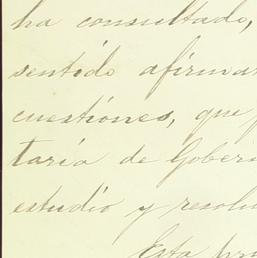 ha consultado,
sentido afirma
cuestiones, que
taría de Gober
estudio y resolu
Esta